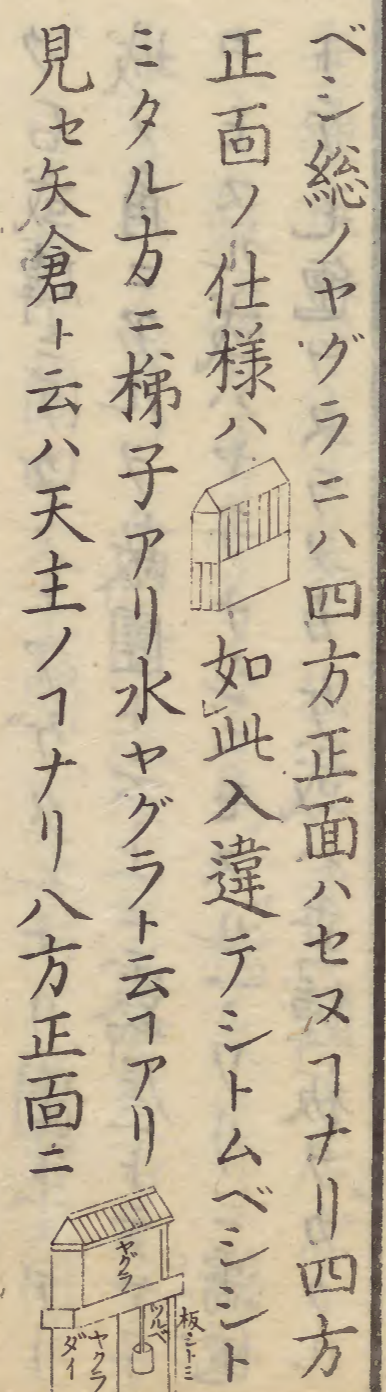 ベシ総ノヤグラニハ四方正面ハセヌヿナリ四方
正面ノ仕様ハ如レ此入違テシトムベシシト
ミタル方ニ梯子アリ水ヤグラト云ヿアリ
見セ矢倉ト云ハ天主ノヿナリ八方正面ニ
ヤグラ
ツルベ
板シトミ
ヤクラ
ダイ